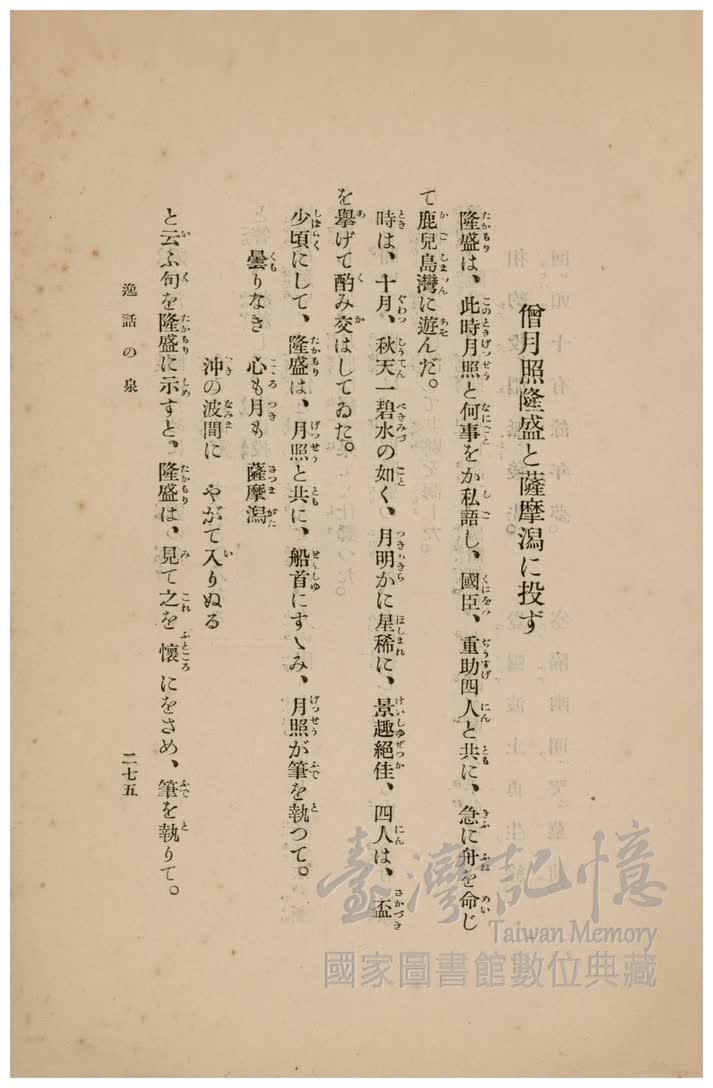 僧月照隆盛と薩摩潟に投ず
隆盛は、此時月照と何事をか私語し、國臣、重助四人と共に、急に舟を命じ
て鹿兒島灣に遊んだ。
時は、十月、秋天一碧水の如く、月明かに星稀に、景趣絕佳、四人は、盃
を擧げて酌み交はしてゐた。
少頃にして、隆盛は、月照と共に、船首にすゝみ、月照が筆を執つて。
曇りなき　心も月も　薩摩潟
沖の波間に　やがて入りぬる
と云ふ句を隆盛に示すと、隆盛は、見て之を懷にをさめ、筆を執りて。
逸話の泉
二七五
臺灣記憶
Taiwan Memory
國家圖書館數位典藏